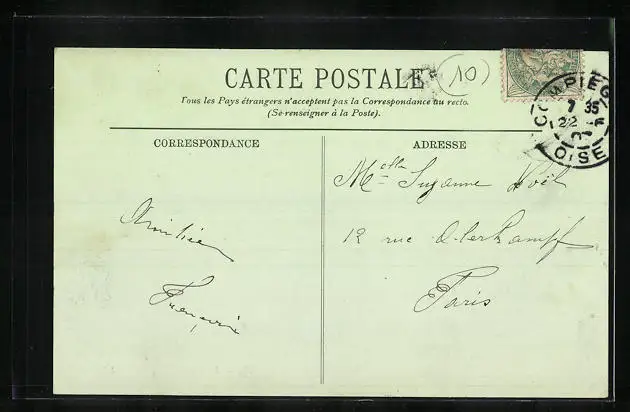 CARTE POSTALE
(10)
Tous les Pays étrangers n'acceptent pas la Correspondance au recto.
(Se renseigner à la Poste).
COMPIEG
7 35
22
OISE
CORRESPONDANCE
ADRESSE
Melle Suzanne Noël
12 rue Oberkampf
Paris
Amitiés